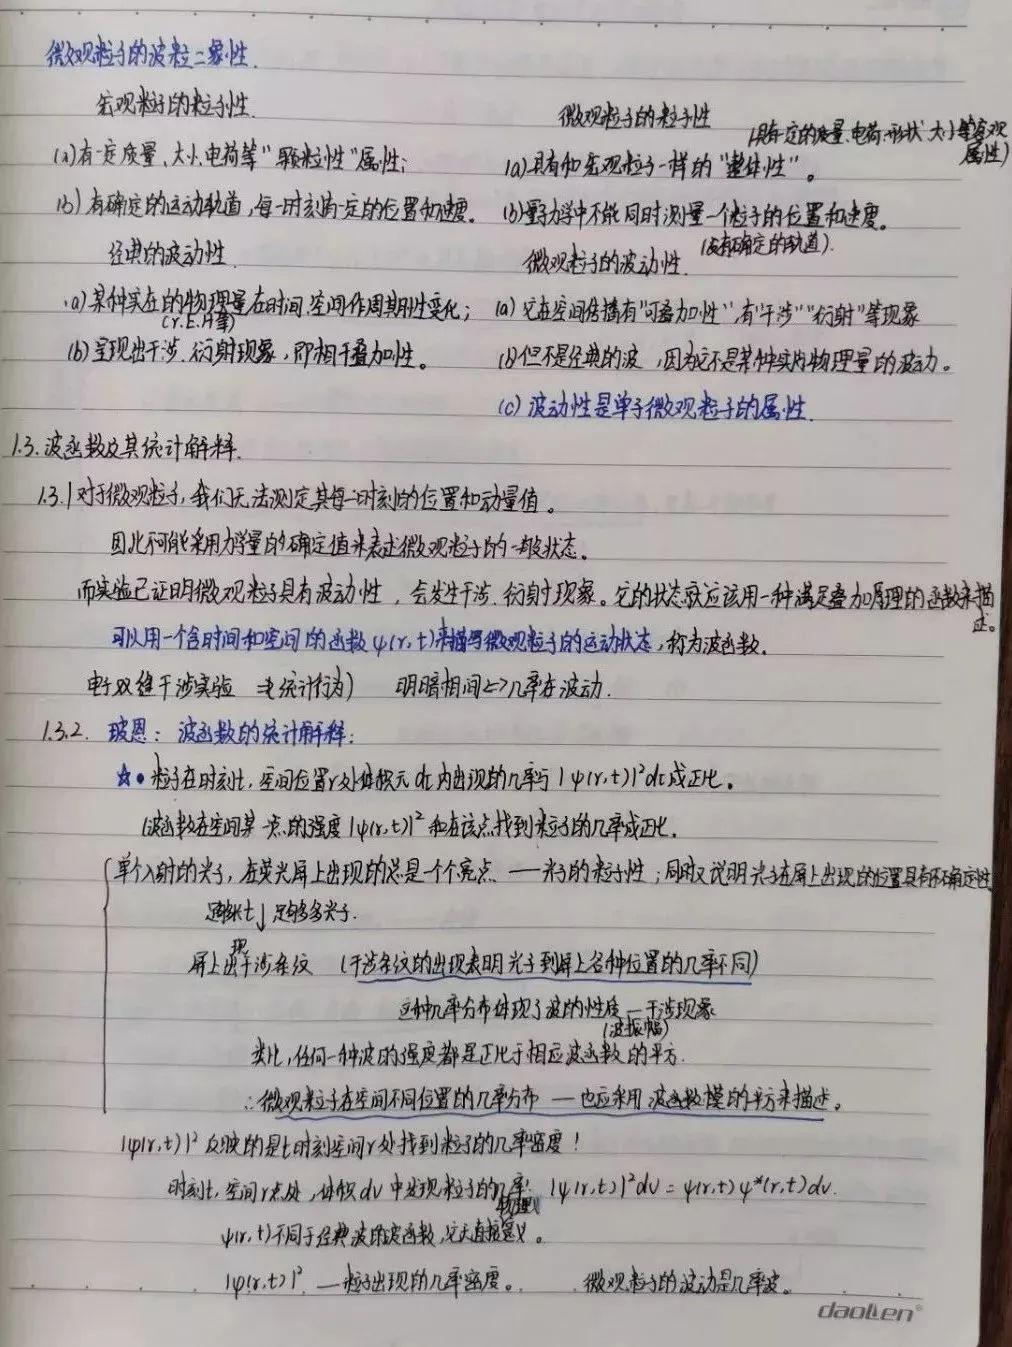 微观粒子的波粒二象性.
宏观粒子的粒子性.
微观粒子的粒子性
(具有一定的质量、电荷、形状、大小等客观属性)
(a)有一定质量、大小、电荷等"颗粒性"属性;
(a)具有和宏观粒子一样的"整体性"。
(b)有确定的运动轨道,每一时刻有一定的位置和速度。
(b)量子力学中不能同时测量一个粒子的位置和速度。
(没有确定的轨道).
经典的波动性
微观粒子的波动性.
(a)某种实在的物理量在时间.空间作周期性变化;
(r.E.H等)
(a)它在空间传播有"可叠加性",有"干涉""衍射"等现象
(b)呈现出干涉.衍射现象,即相干叠加性。
(b)但不是经典的波,因为它不是某种实际物理量的波动。
(c)波动性是单个微观粒子的属性.
1.3.波函数及其统计解释.
1.3.1对于微观粒子,我们无法测定其每一时刻的位置和动量值。
因此不可能采用力学量的确定值来表述微观粒子的一般状态。
而实验已证明微观粒子具有波动性,会发生干涉.衍射现象。它的状态就应该用一种满足叠加原理的函数来描述。
可以用一个含时间和空间的函数ψ(r,t)来描写微观粒子的运动状态,称为波函数。
电子双缝干涉实验 统计行为) 明暗相间<=>几率在波动.
1.3.2. 玻恩: 波函数的统计解释:
☆•粒子在时刻t,空间位置r处体积元dτ内出现的几率与|ψ(r,t)|²dτ成正比。
(波函数在空间某一点的强度|ψ(r,t)|²和在该点找到粒子的几率成正比.
单个入射的光子,在荧光屏上出现的总是一个个亮点 ——光子的粒子性;同时又说明光子在屏上出现的位置具有不确定性
足够长t↓足够多光子.
屏上出现干涉条纹 (干涉条纹的出现表明光子到屏上各种位置的几率不同)
这种几率分布体现了波的性质—干涉现象
(波振幅)
类比,任何一种波的强度都是正比于相应波函数的平方.
∴微观粒子在空间不同位置的几率分布 —也应采用 波函数模的平方来描述。
|ψ(r,t)|²反映的是t时刻空间r处找到粒子的几率密度!
时刻t,空间r点处,体积dv中发现粒子的几率: |ψ(r,t)|²dv=ψ(r,t)ψ*(r,t)dv.
ψ(r,t)不同于经典波的波函数,它无直接物理意义。
|ψ(r,t)|² —粒子出现的几率密度。 微观粒子的波动是几率波。
daolen®